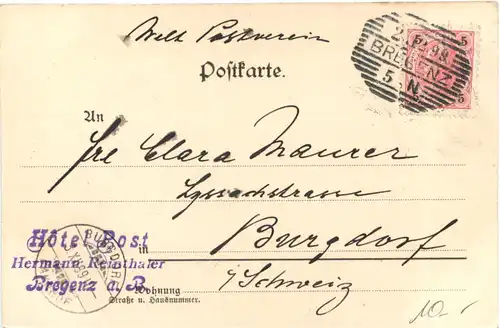 Welt Postverein
Postkarte.
5
BREGENZ
5 N
5
5
An
Clara Maurer
Lyssachstrasse
in Burgdorf
Schweiz
Hôtel Post
Hermann Reinthaler
Bregenz a. B.
BURGDORF
Wohnung
Straße u. Hausnummer.
10.-